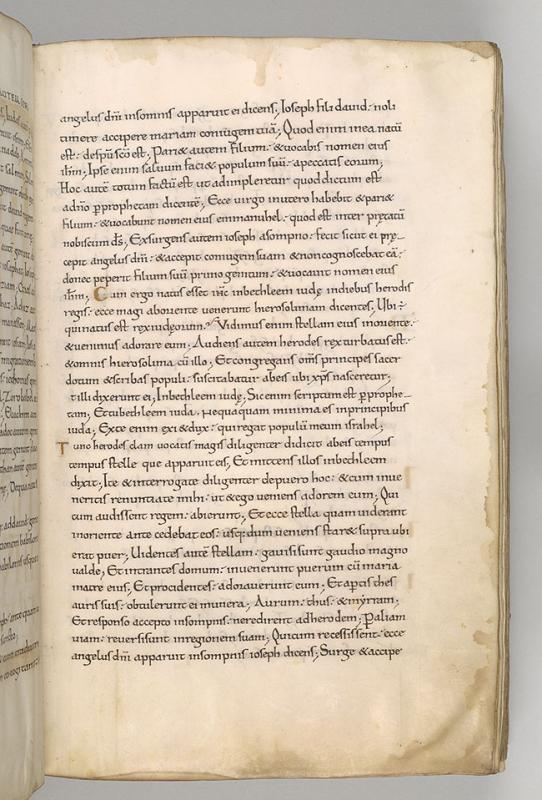 4
angelus dñi insomnis apparuit ei dicens; Ioseph fili dauid· noli
timere accipere mariam coniugem tuã; Quod enim inea natũ
est· despũ sc̃o est; Pari& autem filium· &uocabis nomen eius
ihm̃; Ipse enim saluum faci& populum suũ· apeccatis eorum;
Hoc autẽ totum factũ est ut adimpleretur quod dictum est
adño p̱prophetam dicentẽ; Ecce virgo inutero habebit &pari&
filium· &uocabunt nomen eius emmanuhel· quod est inter p̃tatũ
nobiscum d̃s; Exsurgens autem ioseph asompno· fecit sicut ei prę
cepit angelus dñi· &accepit coniugem suam &noncognoscebat eã·
donec peperit filium suũ primo genitum· &uocauit nomen eius
ihm̃; Cum ergo natus esset ihc̃ inbethleem iudę indiebus herodis
regis· ecce magi aboriente venerunt hierosolimam dicentes; Ubi ÷
quinatus est rex iudęorum? Vidimus enim stellam eius inoriente·
&uenimus adorare eum; Audiens autem herodes rex turbatus est·
&omnis hierosolima cũ illo; Et congregans om̃s principes sacer
dotum &scribas populi· suscitabatur abeis ubi xp̃s nasceretur;
tilli dixerunt ei; Inbethleem iudę; Sic enim scriptum est p̱prophe
tam; Et tu bethleem iuda· nequaquam minima es inprincipibus
iuda; Ex te enim exi& dux· qui regat populũ meum israhel;
Tunc herodes clam uocatis magis diligenter didicit abeis tempus
tempus stelle que apparuit eis; Et mittens illos inbethleem
dixit; Ite &interrogate diligenter depuero hoc· &cum inue
neritis renuntiate mihi· ut &ego veniens adorem eum; Qui
cum audissent regem· abierunt; Et ecce stella quam uiderant
inoriente ante cedebat eos· usq; dum ueniens star& supra ubi
erat puer; Uidentes autẽ stellam· gauisi sunt gaudio magno
valde; Et intrantes domum· inuenerunt puerum cũ maria
matre eius; Et procidentes· adorauerunt eum; Et ap̱tis thes
auris suis· obtulerunt ei munera; Aurum· thus· &myrram;
Et responso accepto insompnis· neredirent adherodem; p̱ aliam
viam· reuersi sunt inregionem suam; Qui cum recessissent· ecce
angelus dñi apparuit insompnis ioseph dicens; Surge &accipe